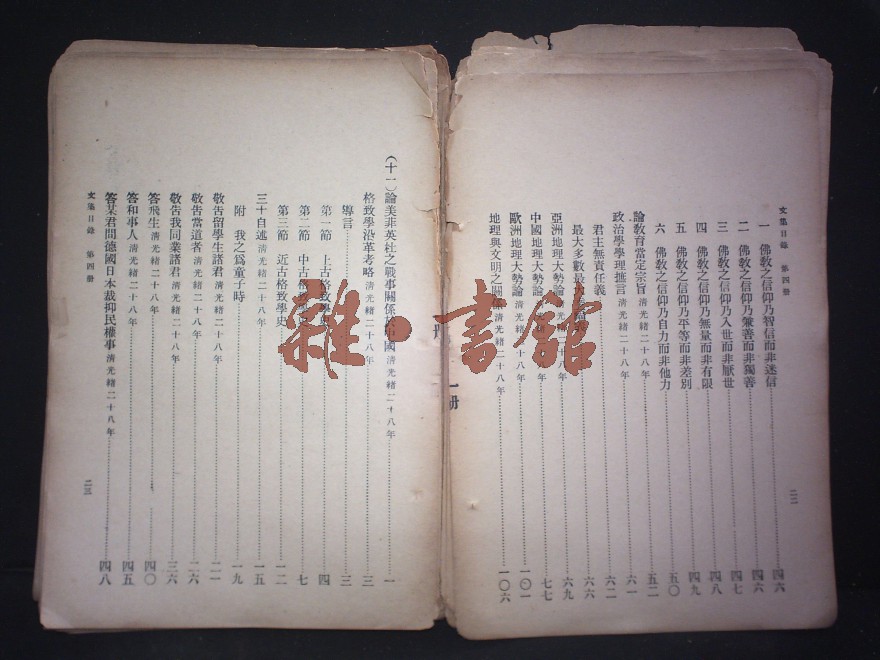 文集目錄 第四册 二二
一 佛教之信仰乃智信而非迷信……四六
二 佛教之信仰乃兼善而非獨善……四六
三 佛教之信仰乃入世而非厭世……四七
四 佛教之信仰乃無量而非有限……四八
五 佛教之信仰乃平等而非差別……四九
六 佛教之信仰乃自力而非他力……五〇
論教育當定宗旨 清光緒二十八年……五二
政治學學理摭言 清光緒二十八年……六一
君主無責任義……六二
最大多數最……六六
亞洲地理大勢論 清光緒二十八年……六九
中國地理大勢論 清光緒二十八年……七七
歐洲地理大勢論 清光緒二十八年……一〇一
地理與文明之關係 清光緒二十八年……一〇六
一册
(十一)論美非英杜之戰事關係於中國 清光緒二十八年……一
格致學沿革考略 清光緒二十八年……三
導言……三
第一節 上古格致學史……四
第二節 中古格致學史……七
第三節 近古格致學史……一二
三十自述 清光緒二十八年……一五
附 我之爲童子時……一九
敬告留學生諸君 清光緒二十八年……二一
敬告當道者 清光緒二十八年……二六
敬告我同業諸君 清光緒二十八年……三六
答飛生 清光緒二十八年……四〇
答和事人 清光緒二十八年……四五
答某君問德國日本裁抑民權事 清光緒二十八年……四八
文集目錄 第四册 二三
雜·書館